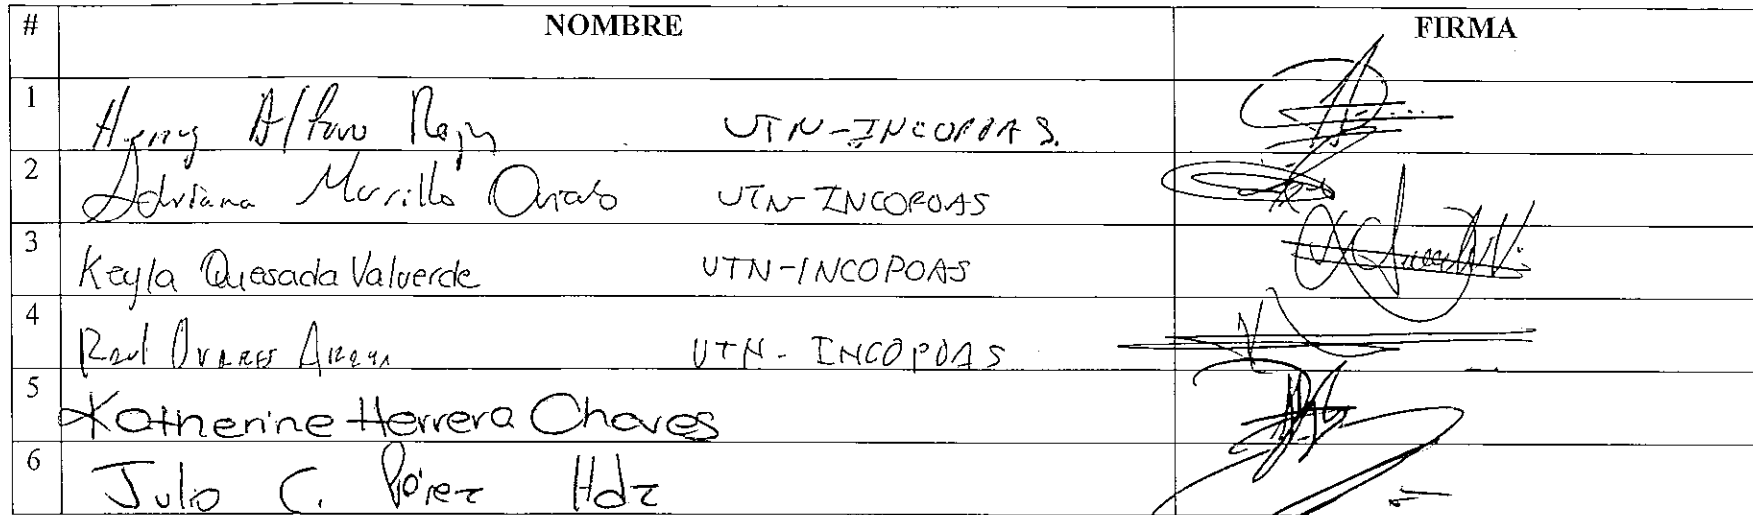 # NOMBRE FIRMA
1 Henry Alfaro UTN-INCOPOAS.
2 Adriana Murillo Arias UTN-INCOPOAS
3 Keyla Quesada Valverde UTN-INCOPOAS
4 Raul UTN-INCOPOAS
5 Katherine Herrera Chaves
6 Julio C. Pérez Hdz